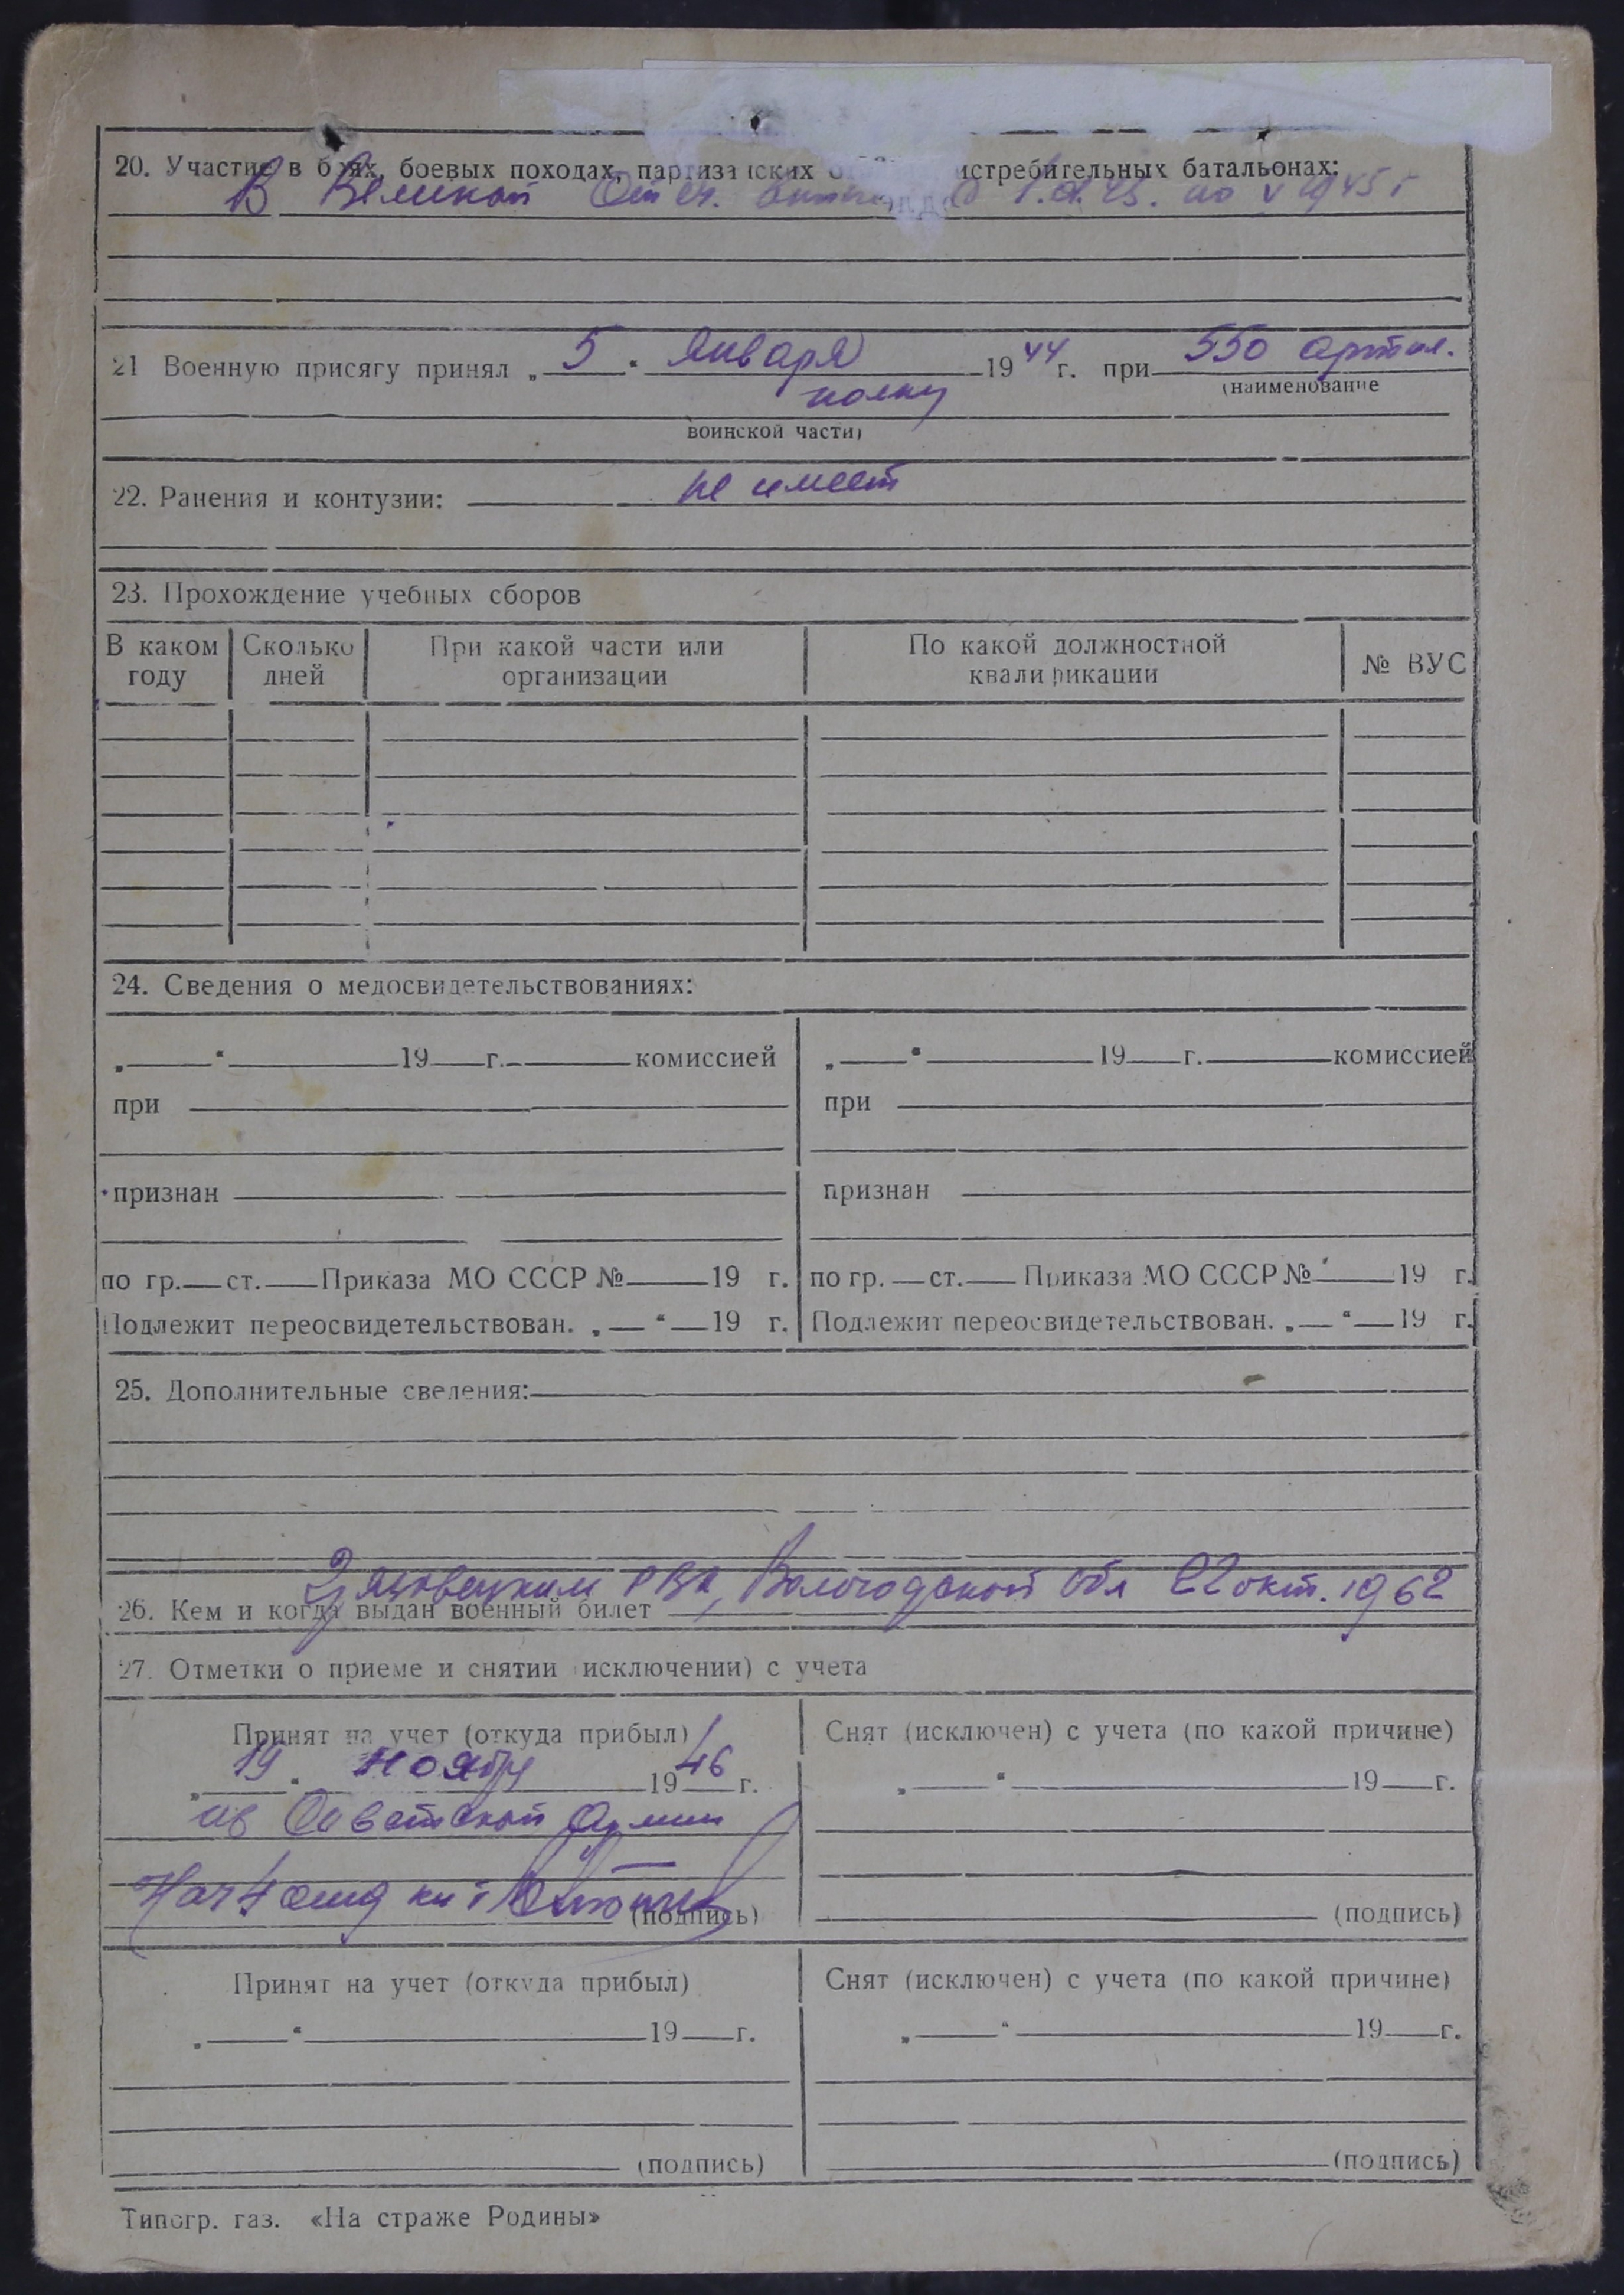 20. Участие в боях, боевых походах, партизанских истребительных батальонах:
В Великой Отеч. по V 1945 г
21 Военную присягу принял „ 5 “ января 19 44 г. при 550 артил.
(наименование
полку
воинской части)
22. Ранения и контузии: не имеет
23. Прохождение учебных сборов
В каком году Сколько дней При какой части или организации По какой должностной квалификации № ВУС
24. Сведения о медосвидетельствованиях:
„ “ 19 г. комиссией „ “ 19 г. комиссией
при при
признан признан
по гр. ст. Приказа МО СССР № 19 г. по гр. ст. Приказа МО СССР № 19 г.
Подлежит переосвидетельствован. „ “ 19 г. Подлежит переосвидетельствован. „ “ 19 г.
25. Дополнительные сведения:
Грязовецким РВК, Вологодской обл 22 окт. 1962
26. Кем и когда выдан военный билет
27. Отметки о приеме и снятии (исключении) с учета
Принят на учет (откуда прибыл) Снят (исключен) с учета (по какой причине)
„ 19 “ ноября 19 46 г. „ “ 19 г.
из Советской Армии
Нач 4
(подпись) (подпись)
Принят на учет (откуда прибыл) Снят (исключен) с учета (по какой причине)
„ “ 19 г. „ “ 19 г.
(подпись) (подпись)
Типогр. газ. «На страже Родины»